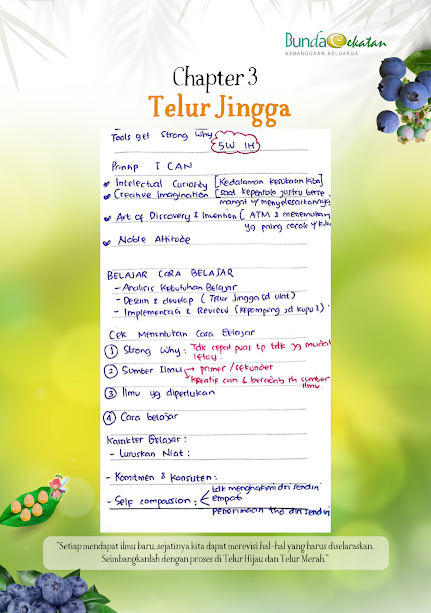 Bunda Cekatan
KEBANGGAAN KELUARGA
Chapter 3
Telur Jingga
Tools get Strong Why
5W 1H
Prinsip I CAN
Intelectual Curiosity [Kedalaman kesukaan kita]
Creative Imagination [saat kepentok justru berse
mangat u/ menyelesaikannya
Art of Discovery & Invention [ ATM & menemukan
yg paling cocok u/ kita
Noble Attitude
BELAJAR CARA BELAJAR
- Analisis Kebutuhan Belajar
- Desain & develop ( Telur Jingga sd ulat)
- Implementasi & Review (Kepompong sd kupu2)
Cek Menentukan Cara Belajar
1 Strong Why : Tdk cepat puas tp tdk yg mudah
lelay
2 Sumber Ilmu → primer / sekunder
→ kreatif cari & beradab th sumber
ilmu
3 Ilmu yg diperlukan
4 Cara belajar
Karakter Belajar :
- Luruskan Niat :
- Komitmen & Konsisten :
- Self compassion : tdk menghakimi diri sendiri
empati
Penerimaan thd diri sendiri
"Setiap mendapat ilmu baru, sejatinya kita dapat merevisi hal-hal yang harus diselaraskan.
Seimbangkanlah dengan proses di Telur Hijau dan Telur Merah."